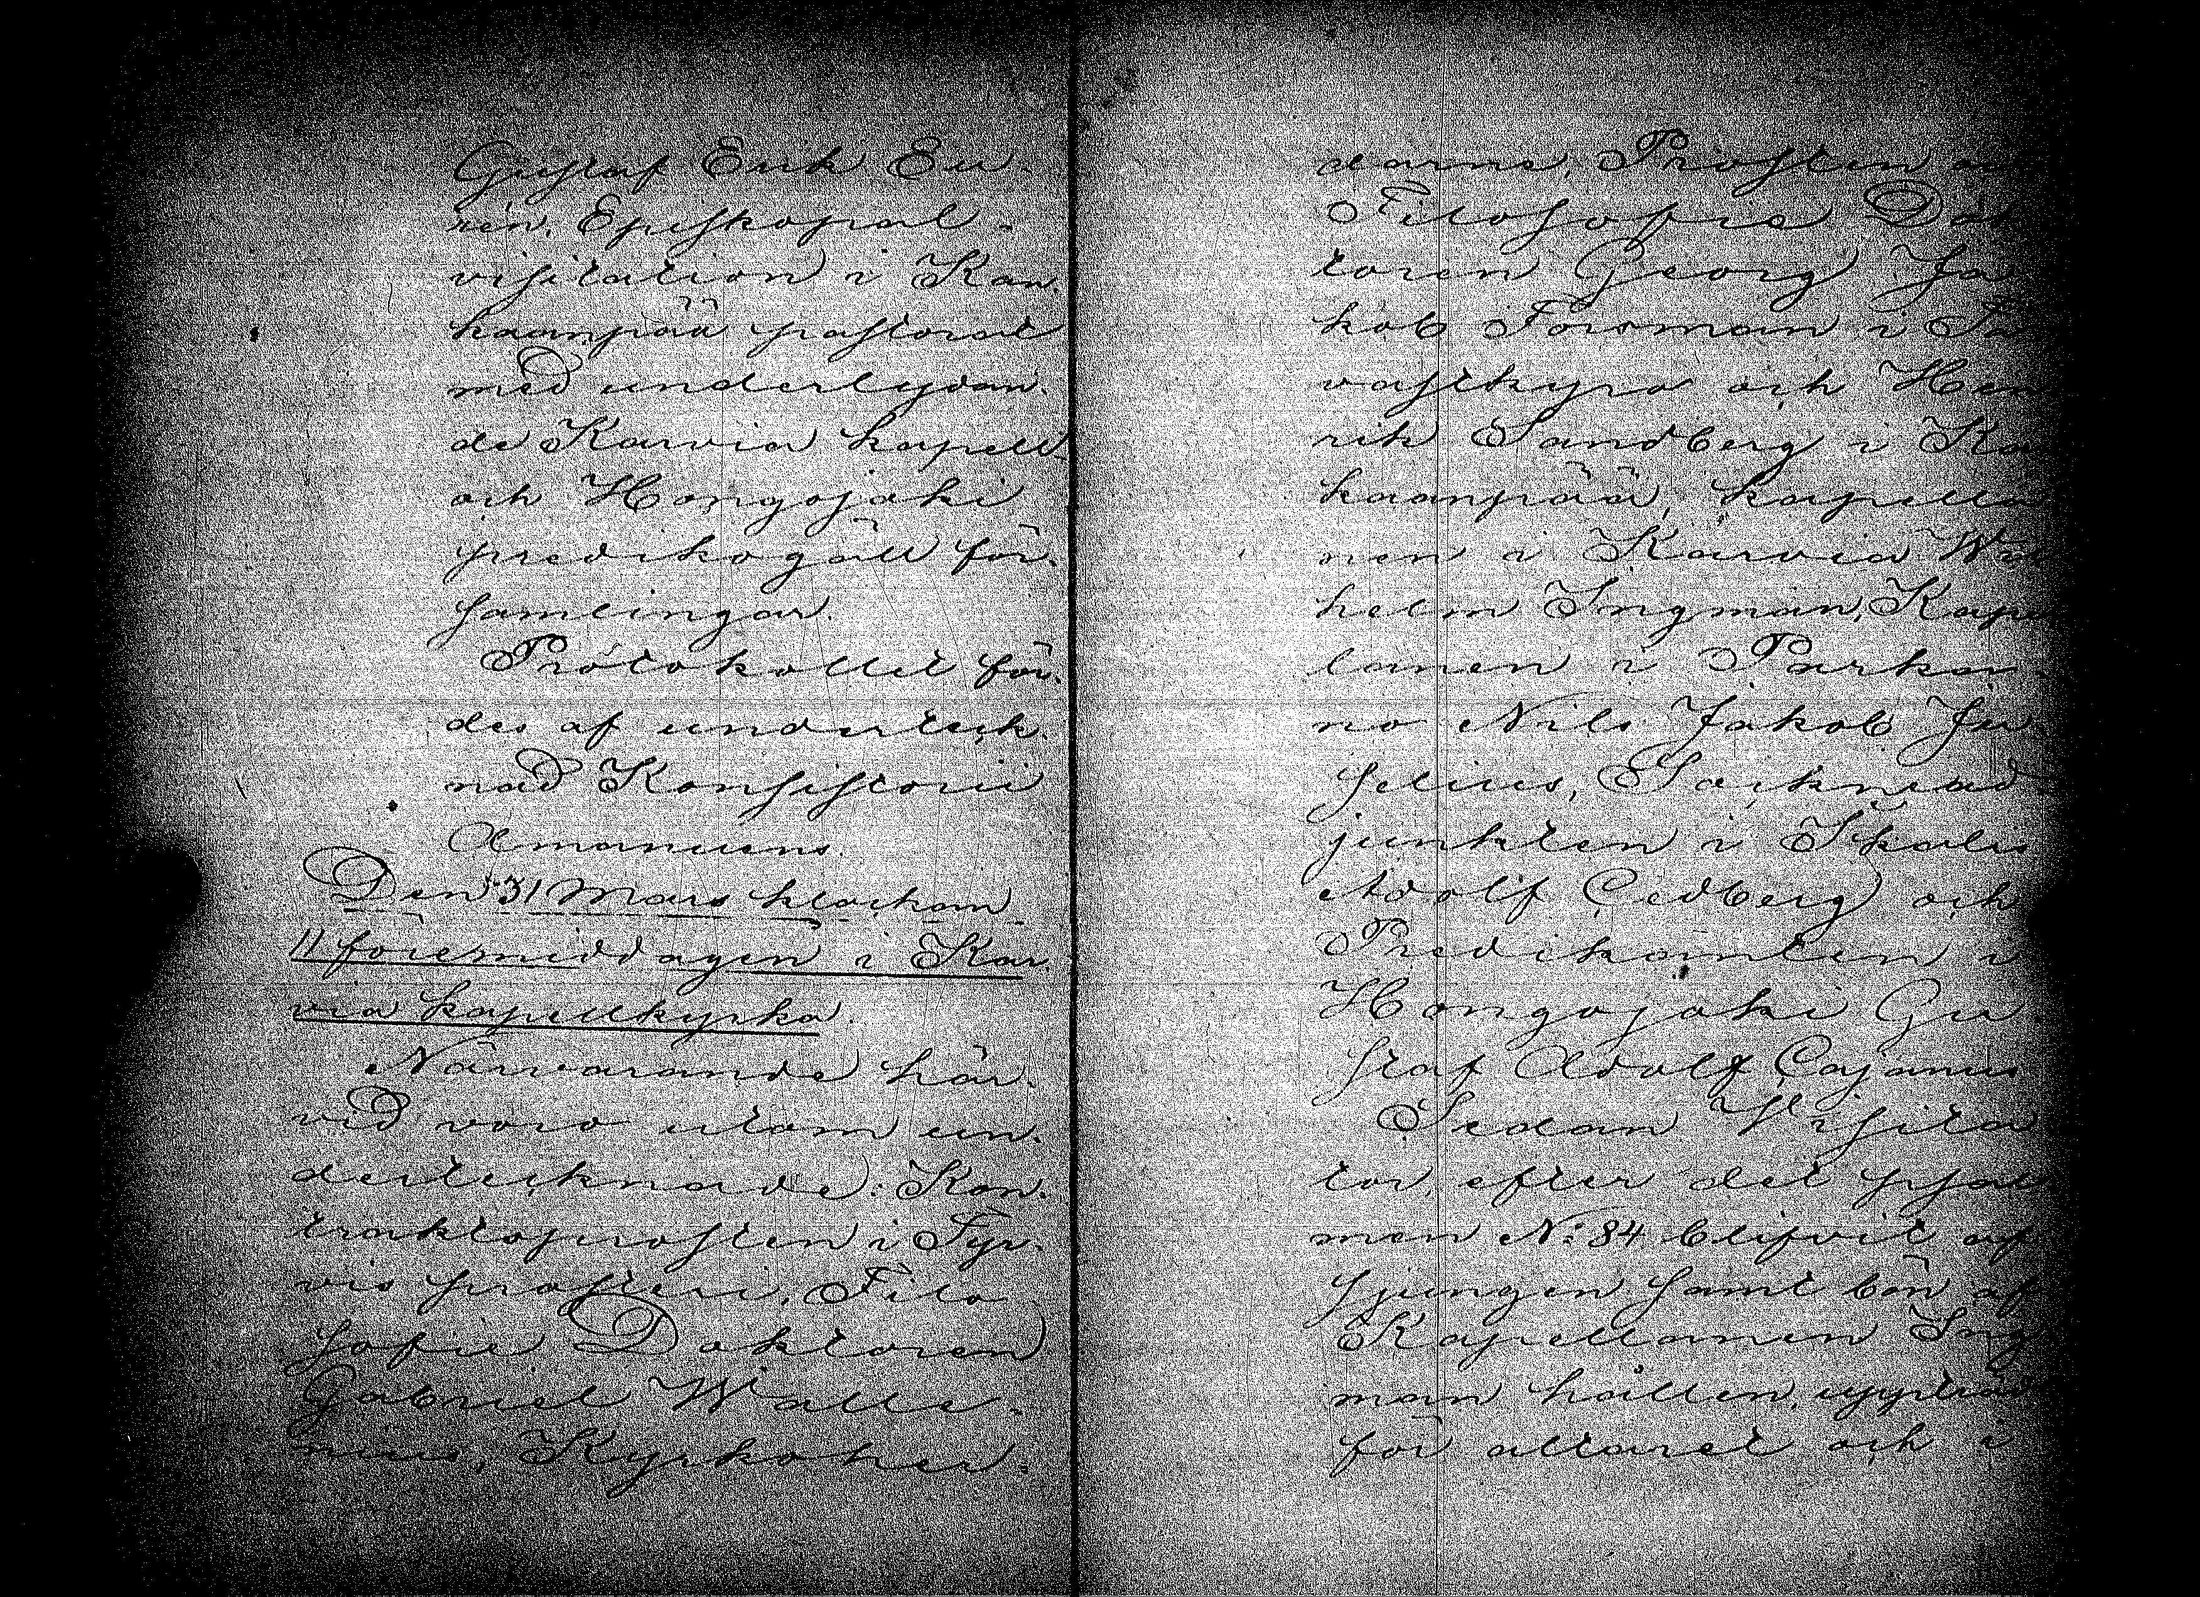 Gustaf Erik Eu-
rén, Episkopal-
visitation i Kan-
kaanpää pastorat
med underlydan-
de Karvia kapell-
och Hongojoki
predikogäll för-
samlingar.
Protokollet för-
des af underteck-
nad Konsistorii
Amanuens.
Den 31 Mars klockan
11 föremiddagen i Kar-
via kapellkyrka.
Närvarande här-
vid voro utom un-
dertecknade: Kon-
traktsprosten i Tyr-
vis prosteri, Filo-
sofie Doktoren
Gabriel Walle-
nius, Kyrkoher-
darne, Prosten och
Filosofie Dok
toren Georg Ja
kob Forsman i Ta
vastkyro och Hen
rik Sandberg i Kan
kaanpää, kapella
nen i Karvia Wil
helm Ingman, Kapel
lanen i Parka-
no Nils Jakob Ju
selius, Socknead-
junkten i Ikalis
Adolf Cedberg och
Predikanten i
Hongojoki Gu-
staf Adolf Cajanus
Sedan Visita
tor, efter det psal
men N:o 84 blifvit af
sjungen samt bön af
Kapellanen Ing
man hållen, uppträdt
för altaret och i